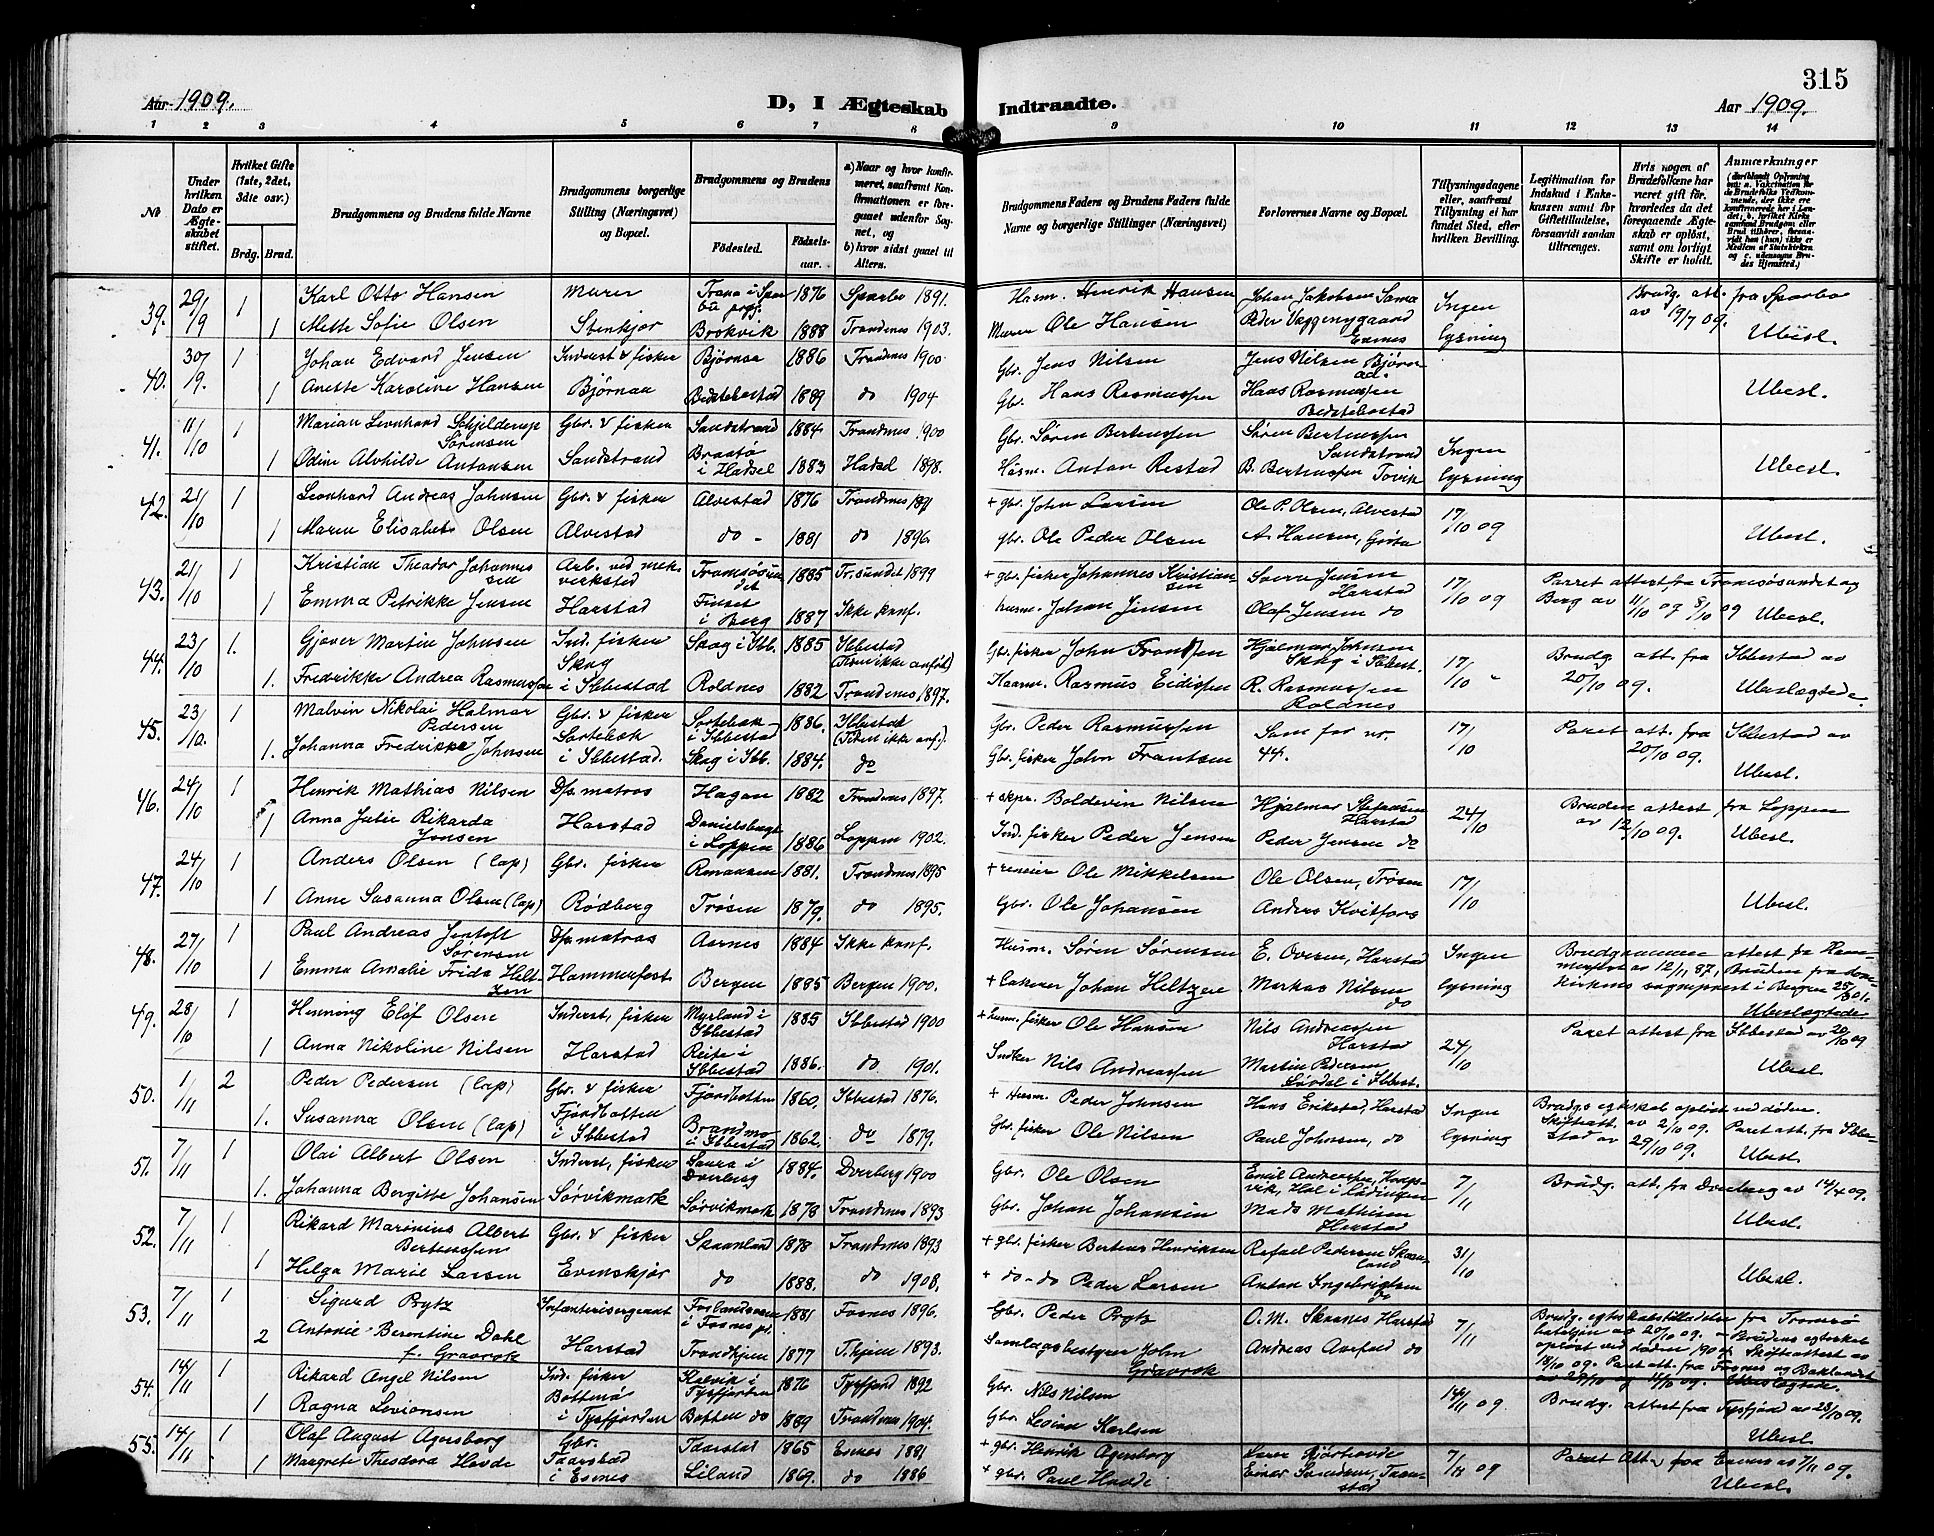 315
Aar 1909.
D, I Ægteskab Indtraadte.
Aar 1909.
1 2 3 4 5 6 7 8 9 10 11 12 13 14
No
Under hvilken Dato er Ægteskabet stiftet.
Hvilket Gifte (1ste, 2det, 3die osv.)
Brdg. Brud.
Brudgommens og Brudens fulde Navne
Brudgommens borgerlige Stilling (Næringsvei) og Bopæl.
Brudgommens og Brudens
Födested. Födselsaar.
a) Naar og hvor konfirmeret, saafremt Konfirmationen er foregaaet udenfor Sognet, og
b) hvor sidst gaaet til Alters.
Brudgommens Faders og Brudens Faders fulde Navne og borgerlige Stillinger (Næringsvei)
Forlovernes Navne og Bopæl.
Tillysningsdagene eller, saafremt Tillysning ei har fundet Sted, efter hvilken Bevilling.
Legitimation for Indskud i Enkekassen samt for Giftetilladelse, forsaavidt saadan tiltrænges.
Hvis nogen af Brudefolkene har været gift för, hvorledes da det foregaaende Ægteskab er oplöst, samt om lovligt Skifte er holdt.
Anmærkninger
39. 29/19 1 Karl Otto Hansen Murer 1876 Sparbo 1891. Husm. Henrik Hansen Johan Jakobsen Ingen Brudg. att. fra Sparbo
1 Mette Sofie Olsen Stenkjær Brokvik 1888 Trondenes 1903. Murer Ole Hansen Peder Væggenygaard Evenes lysning av 19/7 09. Ubesl.
40. 30/19. 1 Johan Edvard Jensen Inderst & fisker Bjørnaa 1886 Trondenes 1900 Gbr. Jens Nilsen Jens Nilsen Bjørnaa
1 Anette Karoline Hansen Bjørnaa Bedstebostad 1889 do 1904 Gbr. Hans Rasmussen Hans Rasmussen Bedstebostad Ubesl.
41. 11/10 1 Marian Leonhard Schjelderup Sørensen Gbr. & fisker Sandstrand 1884 Trondenes 1900 Gbr. Søren Bertenssen Søren Bertenssen Sandstrand Ingen
1 Odine Alvhilde Antonsen Sandstrand Brastø i Hadsel 1883 Hadsel 1898. Husm. Anton Restad B. Bertenssen Tovik lysning Ubesl.
42. 21/10 1 Leonhard Andreas Johnsen Gbr. & fisker Alvestad 1876 Trondenes 1891 + gbr. John Larsen Ole P. Olsen, Alvestad 17/10 09
1 Maren Elisabet Olsen Alvestad do - 1881 do 1896 gbr. Ole Peder Olsen A. Hansen, Ubesl.
43. 21/10 1 Kristian Theodor Johannessen Arb. ved mek. verksted Tromsøsundet 1885 Tr.sundet 1899 + gbr. fisker Johannes Kristiansen Jensen Harstad 17/10 09 Parret attest fra Tromsøsundet og
1 Emma Petrikke Jensen Harstad Finset i Berg 1887 Ikke konf. husm. Johan Jensen Olaf Jensen do Berg av 11/10 09 8/10 09 Ubesl.
44. 23/10 1. Gjøver Martin Johnsen Ind. fisker Skog i Ibb. 1885 Ibbestad (Tiden ikke anført) Gbr. fisker John Frantsen Hjalmar Johnsen Skog i Ibbest. 17/10 " Brudg. att. fra Ibbestad av
1. Fredrikke Andrea Rasmussen Skog i Ibbestad Roldnes 1882 Trondenes 1897. Haarm. Rasmus Eidissen R. Rasmussen Roldnes 20/10 09. Ubeslægtede.
45. 23/10. 1 Malvin Nikolai Halmar Pedersen Gbr. & fisker Sørtebæk i Ibbestad 1886. Ibbestad (Tiden ikke anf.). Gbr. Peder Rasmussen Som for nr. 44. 17/10 Paret att. fra Ibbestad av
1. Johanna Fredrikke Johnsen Sørtebæk i Ibbestad. Skog i Ibb. 1884. do Gbr. fisker John Frantsen 20/10 09. Ubesl.
46. 24/10 1 Henrik Mathias Nilsen D/s matros Hagan 1882 Trondenes 1897. + skpr. Boldevin Nilsen Hjalmar Stefansen Harstad 24/10 Bruden attest fra Loppen
1 Anna Julie Rikarda Jensen Harstad i Loppen 1886 Loppen 1902. Ind. fisker Peder Jensen Peder Jensen do av 12/10 09. Ubesl.
47. 24/10 1 Anders Olsen (lap) Gbr. fisker 1881. Trondenes 1895 + reneier Ole Mikkelsen Ole Olsen, Trøsen 17/10
1 Anne Susanna Olsen (lap) Rødberg Trøsen 1879. do 1895. Gbr. Ole Johansen Anders Kvitfors Ubesl.
48. 27/10 1 Paul Andreas Jentoft Sørensen D/s matros Aarnes 1884 Ikke konf. Husm. Søren Sørensen E. Oversen, Harstad Ingen Brudgommen attest fra Hammerfest av 12/11 87, Bruden fra domkirkens sogneprest i Bergen 25/8 01.
1 Emma Amalie Frida Heltzen Hammerfest Bergen 1885 Bergen 1900. + Johan Heltzen Markus Nilsen do lysning Ubeslægtede
49. 28/10 1 Henning Elof Olsen Inderst, fisker Myrland i Ibbestad 1885 Ibbestad 1900 + husm. fisker Ole Hansen Nils Andreassen Harstad 24/10 Paret attest fra Ibbestad av 20/10 09
1 Anna Nikoline Nilsen Harstad Reite i Ibbestad 1886. do 1901. Snekker Nils Andreassen Martin Pedersen Løvdal i Ibbest. Ubesl.
50. 1/11 2 Peder Pedersen (lap) Gbr. & fisker Fjordbotten 1860. Ibbestad 1876. + Husm. Peder Johnsen Hans Erikstad, Harstad Ingen Brudgs egteskab opløst ved døden.
1. Susanna Olsen (lap) Fjordbotten i Ibbestad Brandmo i Ibbestad 1862. do 1879. Gbr. fisker Ole Nilsen Paul Johnsen, do lysning Skifteatt. av 2/10 09. Paret att. fra Ibbestad av 29/10 09. Ubesl.
51. 7/11 1 Olai Albert Olsen Inderst, fisker Saura i Dverberg 1884. Dverberg 1900 Gbr. Ole Olsen Emil Andreassen, Kongsvik, Hol i Lødingen 7/11 Brudg. att. fra Dverberg av 14/4 09.
1. Johanna Bergitte Johansen Sørvikmark Sørvikmark 1878 Trondenes 1893 Gbr. Johan Johansen Mads Mathisen Harstad Ubesl.
52. 7/11 1 Rikard Maronius Albert Bertenssen Gbr. & fisker Skaanland 1878 Trondenes 1893 + gbr. fisker Bertens Henriksen Rafael Pedersen Skaanland 31/10
1 Helga Marie Larsen Evenskjær do 1888. do 1908. + do - do Peder Larsen Anton Ingebrigtsen do Ubesl.
53. 7/11 1 Sigurd Prytz Infanterisergeant i Fosnes 1881 Fosnes 1896. Gbr. Peder Prytz O. M. Skaanes Harstad 7/11 Brudg. egteskabstilladelse fra Tromsø bataljon av 20/10 09. - Brudens egteskab opløst ved døden 1904. Skifteattest av
2 Antonie Berontine Dahl f. Gravrok Harstad Trondhjem 1877 T.hjem 1893. Samlagsbestyrer John Gravrok Andreas Aarford do 18/10 09. Paret att. fra Fosnes og Baklandet av 29/10 og 4/10 09. Ubeslægtede.
54. 14/11 1 Rikard Angel Nilsen Ind. fisker Kalvik i Tysfjorden 1876 Tysfjord 1892 Gbr. Nils Nilsen 14/11 09 Brudg. attest fra Tysfjord av 28/10 09.
1 Ragna Levionsen Bottenø i Tysfjorden Botten do 1889 Trondenes 1904. Gbr. Levion Karlsen Ubesl.
55. 14/11 1 Olaf August Agersborg Gbr. Taarstad 1865 Evenes 1881 + gbr. Henrik Agersborg 7/11 09 Paret att. fra Evenes av 7/11 09.
1 Margrete Theodora Hovde Taarstad i Evenes Liland 1869. do 1886 + gbr. Paul Hovde Einar Taarstad Ubesl.